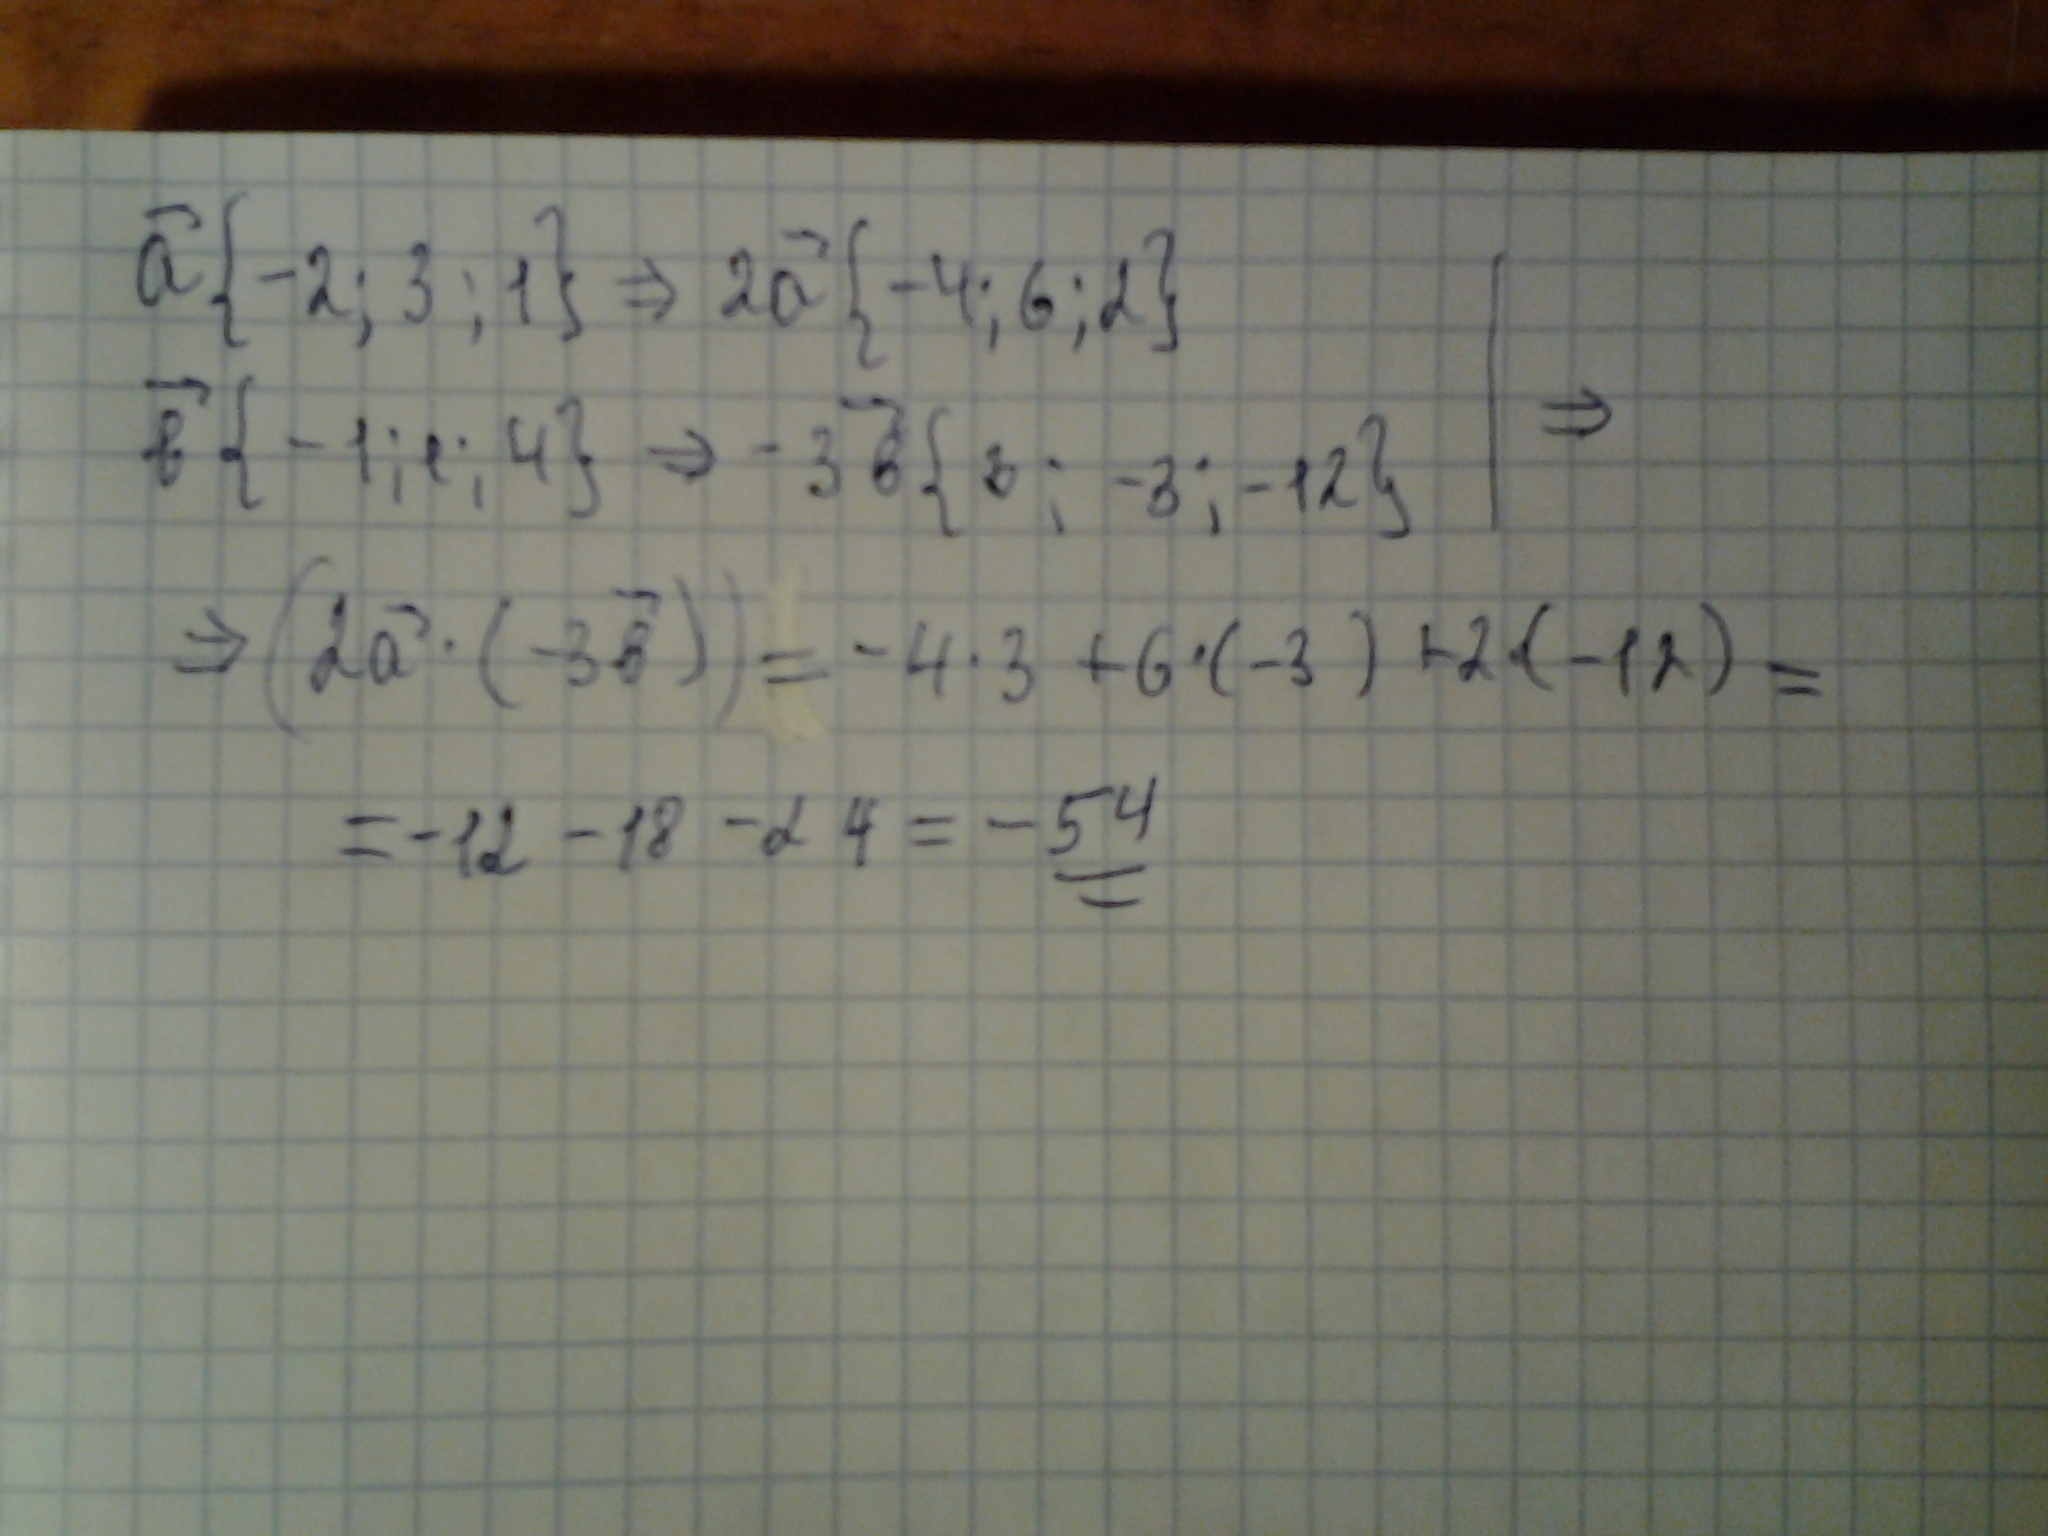 a⃗{-2; 3; 1} ⇒ 2a⃗{-4; 6; 2}
b⃗{-1; 1; 4} ⇒ -3b⃗{3; -3; -12} | ⇒
⇒ (2a⃗ · (-3b⃗)) = -4·3 + 6·(-3) + 2·(-12) =
= -12 - 18 - 24 = -54